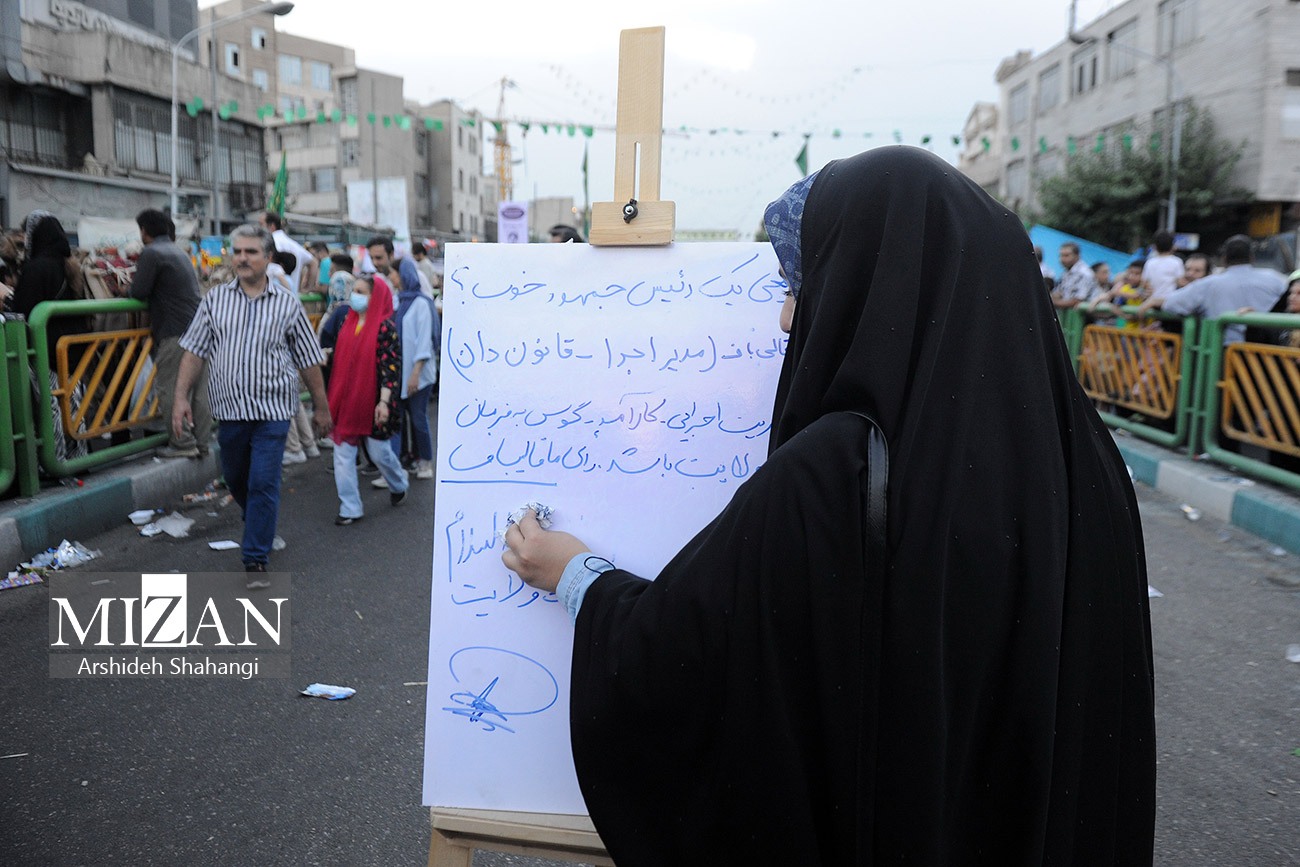 یک رئیس جمهور خوب؟
قالیباف (مدیر اجرا - قانون دان)
اجرایی - کارآمد - گوش به فرمان
ولایت باشد. رای ما قالیباف
ولایت
MIZAN
Arshideh Shahangi